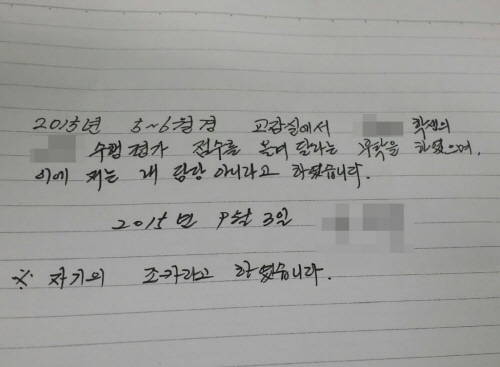 2013년 5~6월경 교감실에서 학생의
수행평가 점수를 올려 달라는 부탁을 하였으며,
이에 저는 내 담당 아니라고 하였습니다.
2015년 9월 3일
※ 자기의 조카라고 하였습니다.